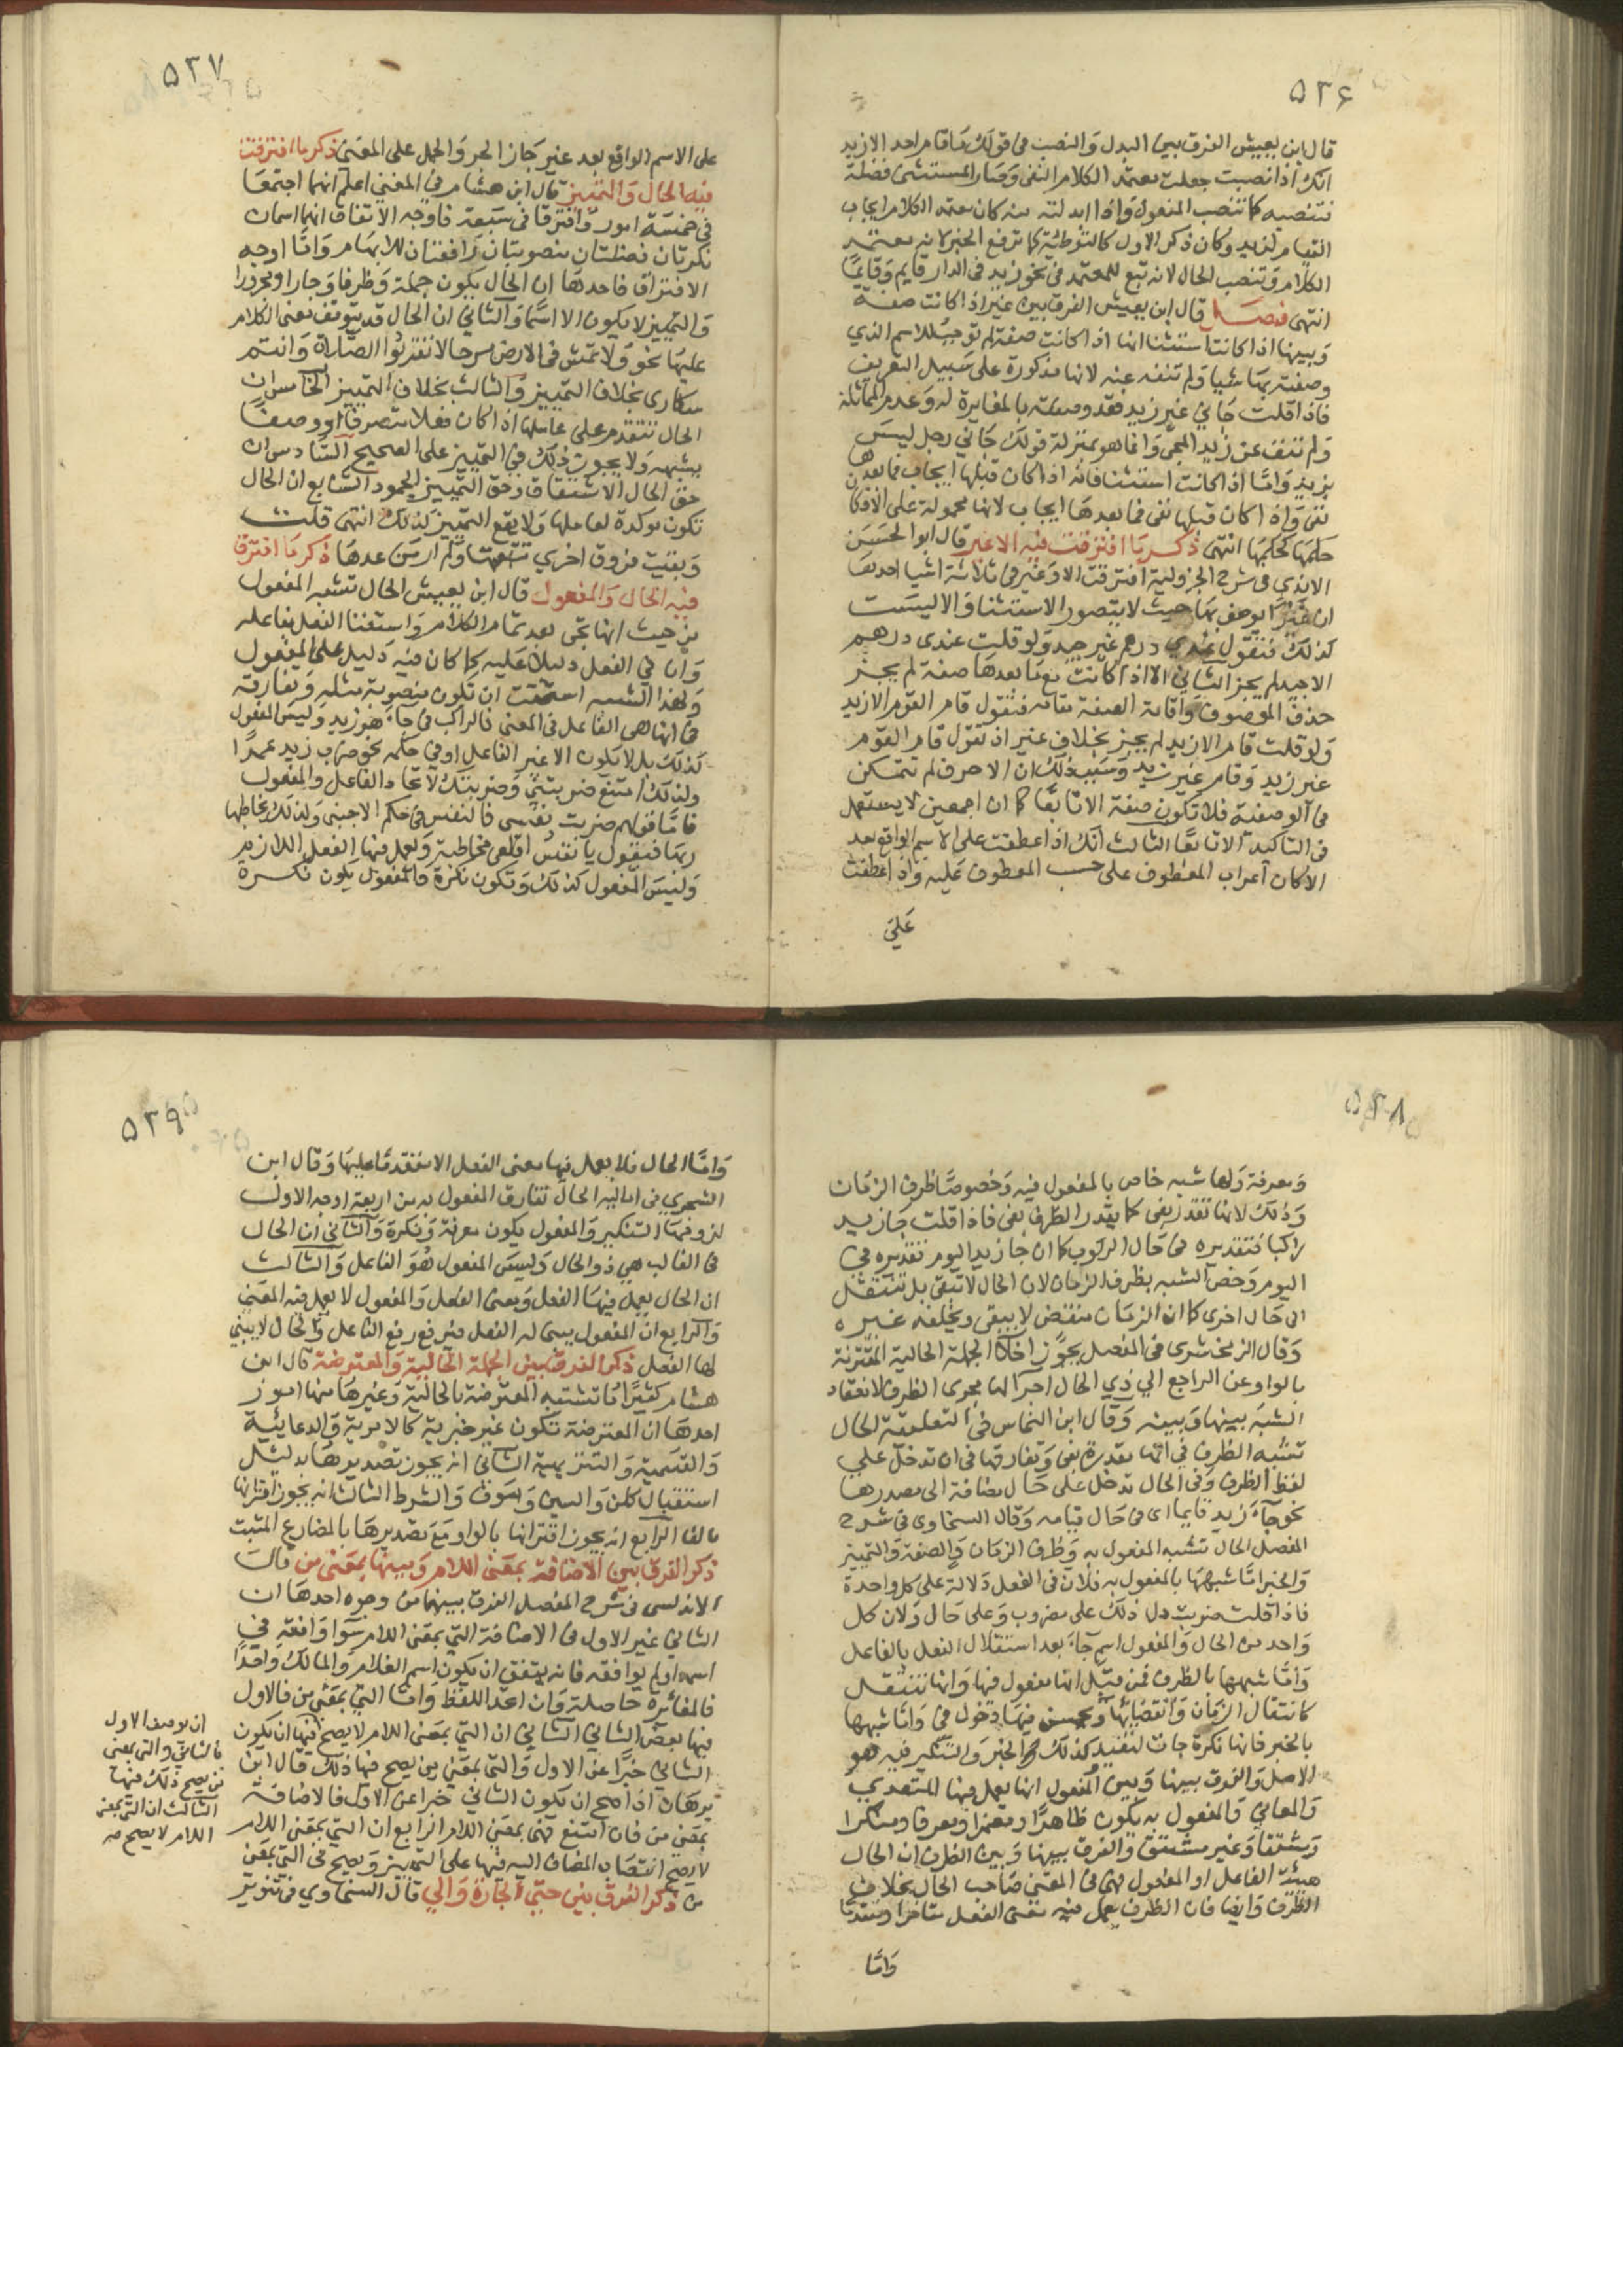 ٥٢٦
قال ابن يعيش الفرق بين البدل والنصب فى قولك ما قام احد الا زيد
انك اذا نصبت جعلت معتمد الكلام النفى وصار المستثنى فضلة
فتنصبه كما تنصب المفعول واذا ابدلته منه كان معتمد الكلام ايجاب
القيام لزيد وكان ذكر الاول كالتوطئة كما ترفع الخبر لانه معتمد
الكلام وتنصب الحال لانه تبع للمعتمد فى نحو زيد فى الدار قايم وقايما
انتهى فصل قال ابن يعيش الفرق بين غير اذا كانت صفة
وبينها اذا كانت استثنا انها اذا كانت صفة لم توجب للاسم الذي
وصفته بها شيا ولم تنف عنه لانها مذكورة على سبيل التعريف
فاذا قلت جاني غير زيد فقد وصفته بالمغايرة له وعدم المماثلة
ولم تنف عن زيد المجى وانما هو بمنزلة قولك جاني رجل ليس
بزيد واما اذا كانت استثنا فانه اذا كان قبلها ايجاب فما بعدها
نفى واذا كان قبلها نفى فما بعدها ايجاب لانها محمولة على الا فكا
حكمها كحكمها انتهى ذكر ما افترقت فيه الا وغير قال ابو الحسن
الابدي فى شرح الجزولية افترقت الا وغير فى ثلاثة اشيا احدها
ان غيرا يوصف بها حيث لا يتصور الاستثنا والا ليست
كذلك فتقول عندي درهم غير جيد ولو قلت عندى درهم
الا جيد لم يجز الثاني الا اذا كانت مع ما بعدها صفة لم يجز
حذف الموصوف واقامة الصفة مقامه فتقول قام القوم الا زيد
ولو قلت قام الا زيد لم يجز بخلاف غير اذ تقول قام القوم
غير زيد وقام غير زيد وسبب ذلك ان الا حرف لم تتمكن
فى الوصفية فلا تكون صفة الا تابعا كما ان اجمعين لا يستعمل
فى التاكيد الا تابعا الثالث انك اذا عطفت على الاسم الواقع بعد
الا كان اعراب المعطوف على حسب المعطوف عليه واذا عطفت
على
٥٢٧
على الاسم الواقع بعد غير جاز الجر والحمل على المعنى ذكر ما افترقت
فيه الحال والتمييز قال ابن هشام في المغني اعلم انهما اجتمعا
في خمسة امور وافترقا فى سبعة فاوجه الاتفاق انهما اسمان
نكرتان فضلتان منصوبتان رافعتان للابهام واما اوجه
الافتراق فاحدها ان الحال يكون جملة وظرفا وجارا ومجرورا
والتمييز لا يكون الا اسما والثاني ان الحال قد يتوقف معنى الكلام
عليها نحو ولا تمش فى الارض مرحا لا تقربوا الصلاة وانتم
سكارى بخلاف التمييز والثالث بخلاف التمييز الخامس ان
الحال تتقدم على عاملها اذا كان فعلا متصرفا او وصفا
يشبهه ولا يجوز ذلك في التمييز على الصحيح السادس ان
حق الحال الاشتقاق وحق التمييز الجمود السابع ان الحال
تكون موكدة لعاملها ولا يقع التمييز كذلك انتهى قلت
وبقيت فروق اخري تتبعتها ولم ار من عدها ذكر ما افترق
فيه الحال والمفعول قال ابن يعيش الحال تشبه المفعول
من حيث انها تجى بعد تمام الكلام واستغنا الفعل بفاعله
وان في الفعل دليلا عليه كما كان فيه دليل على المفعول
ولهذا الشبه استحقت ان تكون منصوبة مثله وتفارقه
فى انها هى الفاعل فى المعنى فالراكب فى جاء هو زيد وليس المفعول
كذلك بل لا يكون الا غير الفاعل او في حكمه نحو ضرب زيد عمرا
ولذلك امتنع ضربتني وضربتك لاتحاد الفاعل والمفعول
فاما قولهم ضربت نفسى فالنفس فى حكم الاجنبى ولذلك يخاطبها
ربها فيقول يا نفس اقلعى مخاطبة ويعمل فيها الفعل اللازم
وليس المفعول كذلك وتكون نكرة والمفعول يكون نكسرة
٥٢٨
ومعرفة ولها شبه خاص بالمفعول فيه وخصوصا ظرف الزمان
وذلك لانها تقدر بفى كما يقدر الظرف بفى فاذا قلت جا زيد
راكبا فتقديره فى حال الركوب كما ان جا زيد اليوم تقديره في
اليوم وخص الشبه بظرف الزمان لان الحال لا تبقى بل تنتقل
الى حال اخرى كما ان الزمان منقض لا يبقى ويخلفه غيره
وقال الزمخشرى فى المفصل يجوز اخلا الجملة الحالية المقترنة
بالواو عن الراجع الي ذي الحال اجرا لها مجرى الظرف لانعقاد
الشبه بينها وبينه وقال ابن النحاس في التعليقة الحال
تشبه الظرف في انها مقدرة بفى وتفارقها فى ان تدخل علي
لفظ الظرف وفى الحال تدخل على حال مضافة الى مصدرها
نحو جاء زيد قايما اى فى حال قيامه وقال السخاوى فى شرح
المفصل الحال تشبه المفعول به وظرف الزمان والصفة والتمييز
والخبر اما شبهها بالمفعول به فلان فى الفعل دلالة على كل واحدة
فاذا قلت ضربت دل ذلك على مضروب وعلى حال ولان كل
واحد من الحال والمفعول اسم جاء بعد استقلال الفعل بالفاعل
واما شبهها بالظرف فمن قبل انها مفعول فيها وانها تنتقل
كانتقال الزمان وانقضائها ويحسن فيها دخول في واما شبهها
بالخبر فانها نكرة جات لتفيد كذلك الخبر والتنكير فيه هو
الاصل والفرق بينها وبين المفعول انها يعمل فيها المتعدي
والمعاني والمفعول به يكون ظاهرا ومضمرا ومعرفا ومنكرا
ومشتقا وغير مشتق والفرق بينها وبين الظرف ان الحال
هيئة الفاعل او المفعول فهي فى المعنى صاحب الحال بخلاف
الظرف وايضا فان الظرف يعمل فيه معنى الفعل متاخرا ومتقدما
واما
٥٢٩
واما الحال فلا يعمل فيها معنى الفعل الا متقدما عليها وقال ابن
الشجري فى اماليه الحال تفارق المفعول به من اربعة اوجه الاول
لزومها التنكير والمفعول يكون معرفة ونكرة والثاني ان الحال
فى الغالب هي ذو الحال وليس المفعول هو الفاعل والثالث
ان الحال يعمل فيها الفعل ومعنى الفعل والمفعول لا يعمل فيه المعنى
والرابع ان المفعول يبنى له الفعل فيرفع رفع الفاعل والحال لا يبني
لها الفعل ذكر الفرق بين الجملة الحالية والمعترضة قال ابن
هشام كثيرا ما تشتبه المعترضة بالحالية وغيرها منها امور
احدها ان المعترضة تكون غير خبرية كالامرية والدعائية
والقسمية والتنزيهية الثاني انه يجوز تصديرها بدليل
استقبال كلن والسين وسوف والشرط الثالث انه يجوز اقترانها
بالفا الرابع انه يجوز اقترانها بالواو مع تصديرها بالمضارع المثبت
ذكر الفرق بين الاضافة بمعنى اللام وبينها بمعنى من قال
الاندلسى فى شرح المفصل الفرق بينهما من وجوه احدها ان
الثاني غير الاول فى الاضافة التي بمعنى اللام سوا وافقه في
اسمه او لم يوافقه فانه يتفق ان يكون اسم الغلام والمالك واحدا
فالمغائرة حاصلة وان اتحد اللفظ واما التي بمعنى من فالاول
فيها بعض الثاني الثاني ان التي بمعنى اللام لا يصح فيها ان يكون
الثاني خبرا عن الاول والتى بمعنى من يصح فيها ذلك قال ابن
برهان اذا صح ان يكون الثاني خبرا عن الاول فالاضافة
بمعنى من فان امتنع فهى بمعنى اللام الرابع ان التي بمعنى اللام
لا يصح انتصاب المضاف اليه فيها على التمييز ويصح فى التي بمعنى
من ذكر الفرق بين حتي الجارة والي قال السخاوي فى تنوير
ان يوصف الاول
بالثاني والتي بمعنى
من يصح ذلك فيها
الثالث ان التي بمعنى
اللام لا يصح صه